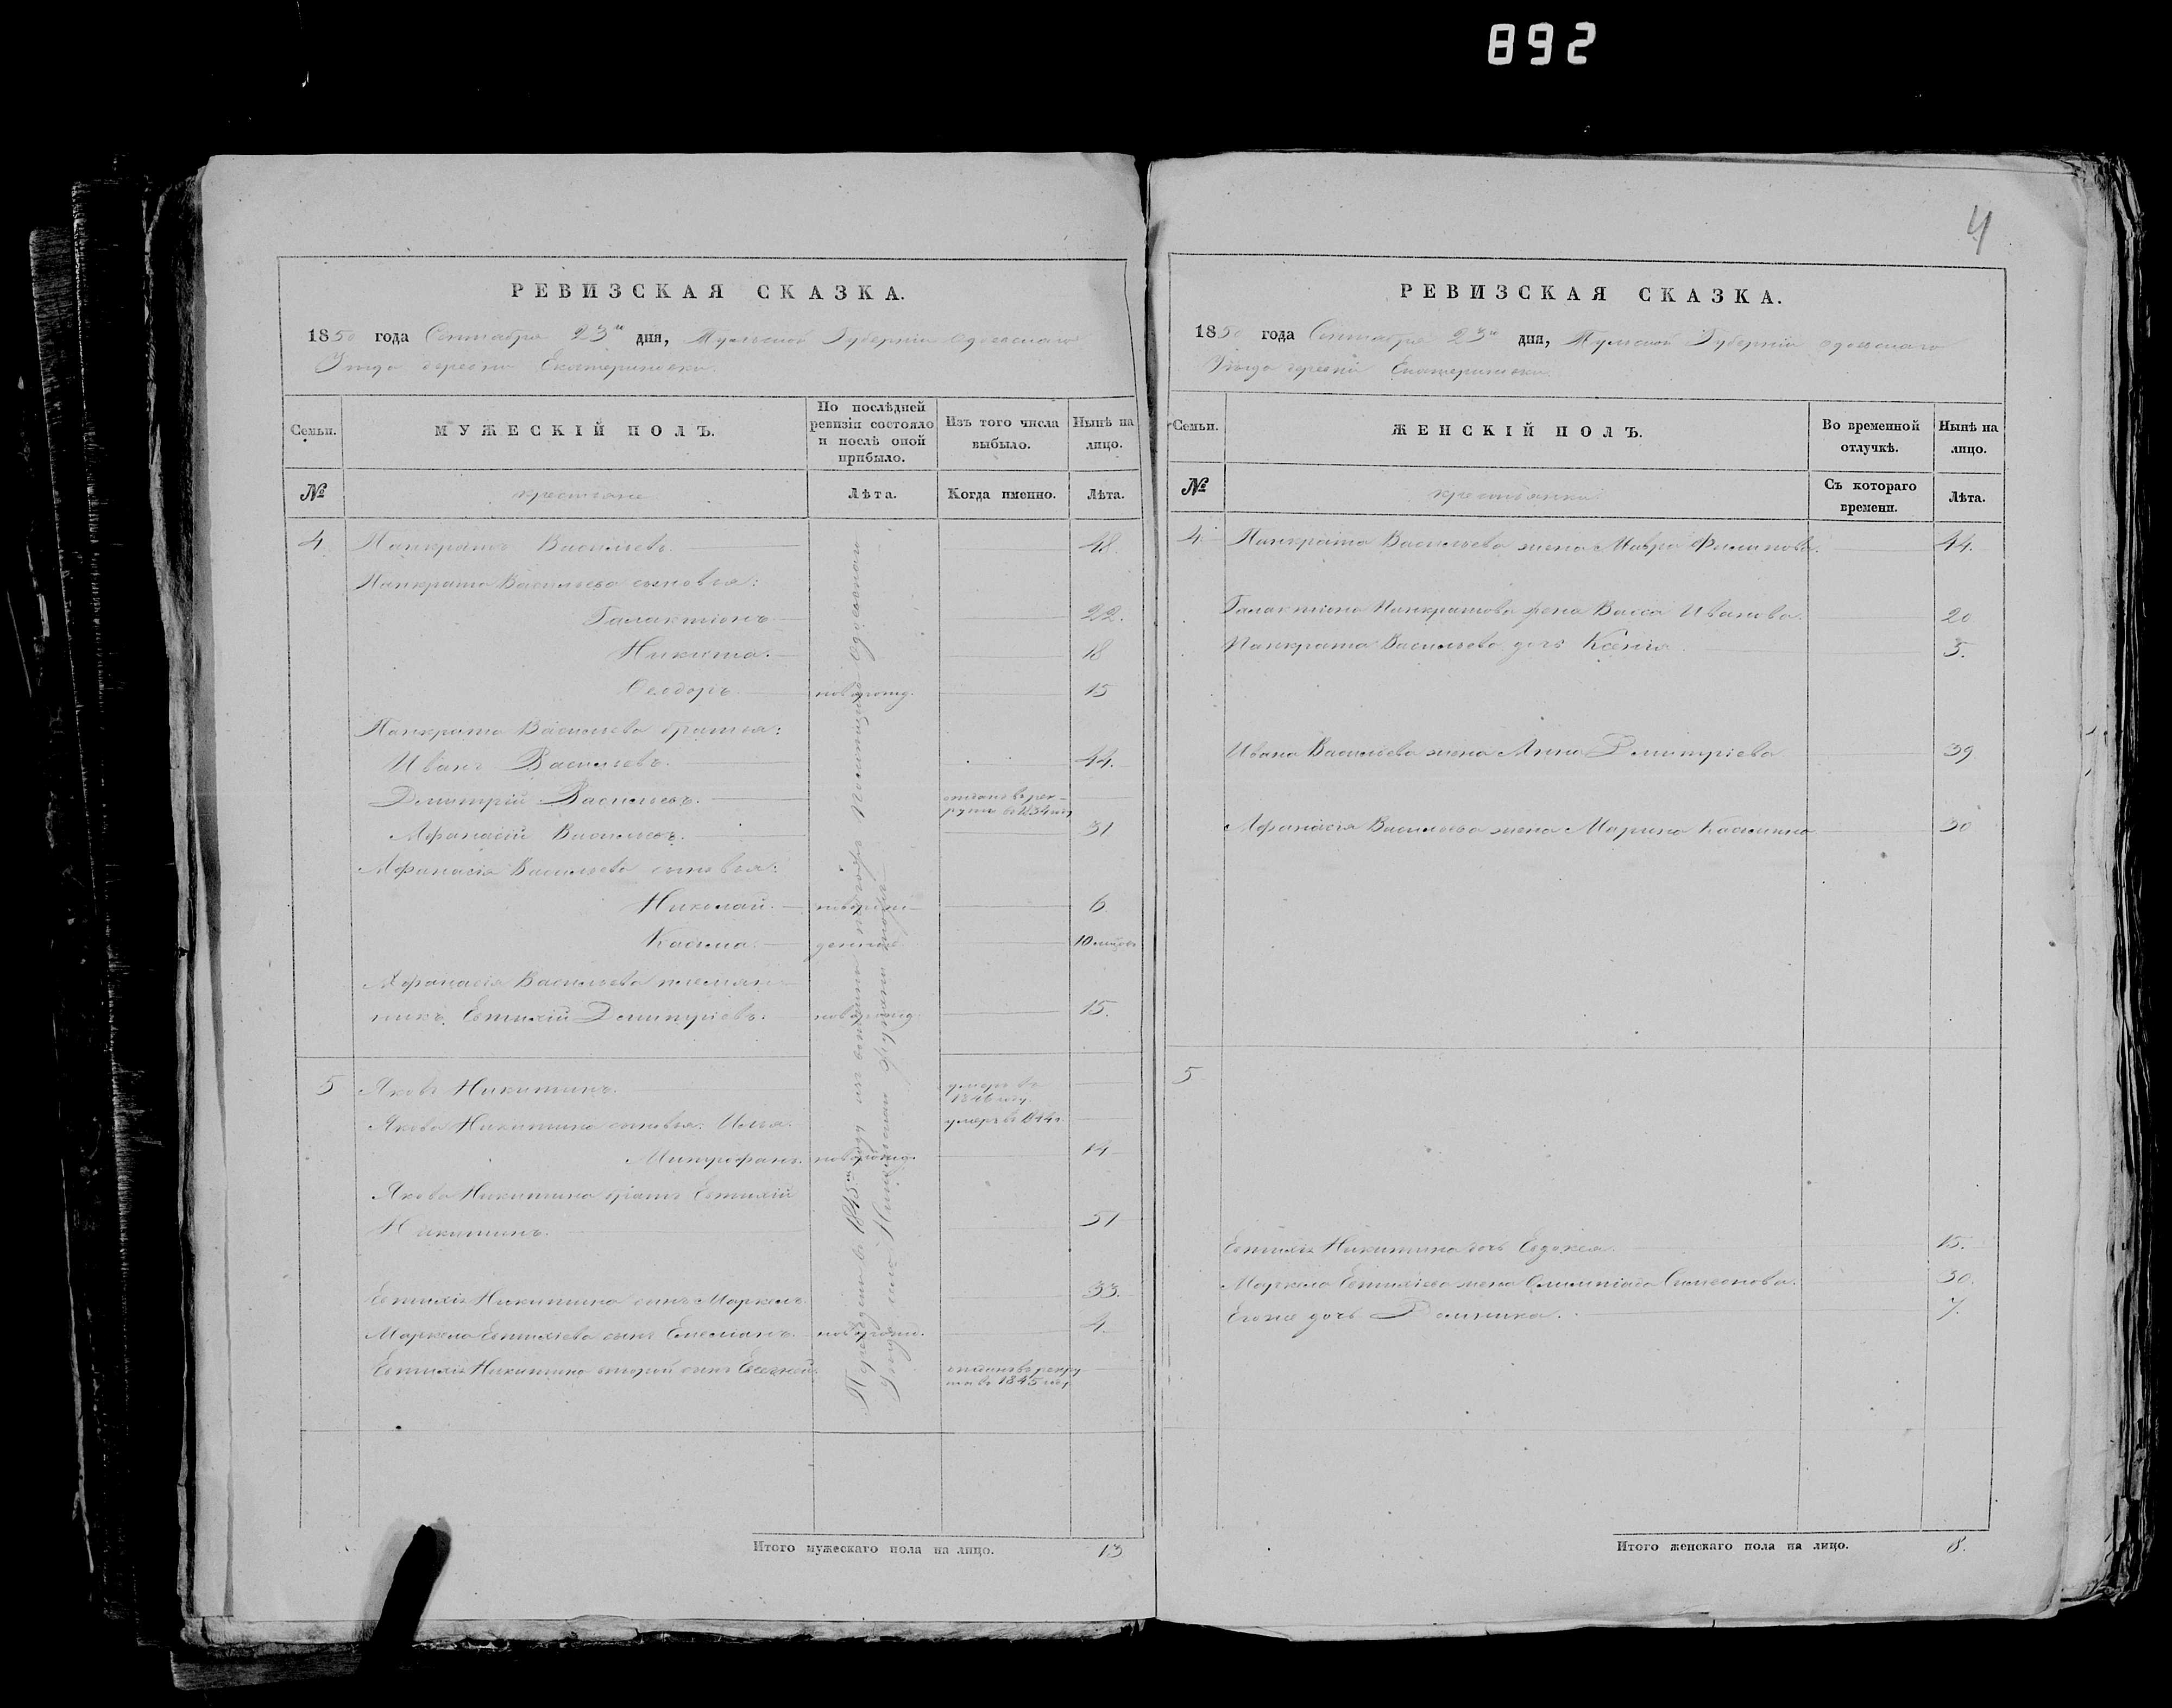 892
4
РЕВИЗСКАЯ СКАЗКА.
1850 года Сентября 23го дня, Тульской Губерніи Одоевскаго
Уѣзда деревни Екатериновки
Семьи.
МУЖЕСКІЙ ПОЛЪ.
По послѣдней ревизіи состояло и послѣ оной прибыло.
Изъ того числа выбыло.
Нынѣ на лицо.
№
крестьяне
Лѣта.
Когда именно.
Лѣта.
4 Панкратъ Васильевъ. 48.
Панкрата Васильева сыновья:
Галактіонъ. 22.
Никита. 18
Ѳеодоръ. новорожд. 15
Панкрата Васильева братья:
Иванъ Васильевъ. 44.
Димитрій Васильевъ. отданъ въ рек-
руты въ 1834 году
Афанасій Васильевъ. 31
Афанасія Васильева сыновья:
Николай. новорож- 6
Касьма. денные 10 мѣсяц.
Афанасія Васильева племян-
никъ Евтихій Димитріевъ. новорожд. 15.
5 Яковъ Никитинъ. умеръ въ
1846 году.
Якова Никитина сыновья: Илья. умеръ въ 1844 г.
Митрофанъ. новорожд. 14
Якова Никитина братъ Евтихій
Никитинъ. 51
Евтихія Никитина сынъ Маркелъ. 33.
Маркела Евтихіева сынъ Емеліанъ. новорожд. 4
Евтихія Никитина второй сынъ отданъ въ рекру-
ты въ 1845 году
Переведены въ 1845м году изъ
Уѣзда села
Итого мужескаго пола на лицо. 13
РЕВИЗСКАЯ СКАЗКА.
1850 года Сентября 23го дня, Тульской Губерніи Одоевскаго
Уѣзда деревни Екатериновки
Семьи.
ЖЕНСКІЙ ПОЛЪ.
Во временной отлучкѣ.
Нынѣ на лицо.
№
крестьянки
Съ котораго времени.
Лѣта.
4. Панкрата Васильева жена Мавра Филипова. 44.
Галактіона Панкратова жена Васса Иванова. 20
Панкрата Васильева дочь Ксенія 5.
Ивана Васильева жена Анна Димитріева 39
Афанасія Васильева жена Марина Касьмина 30
5
Евтихія Никитина дочь Евдокея 15.
Маркела Евтихіева жена Олимпіада Симеонова. 30.
Егоже дочь Домника. 7.
Итого женскаго пола на лицо. 8.